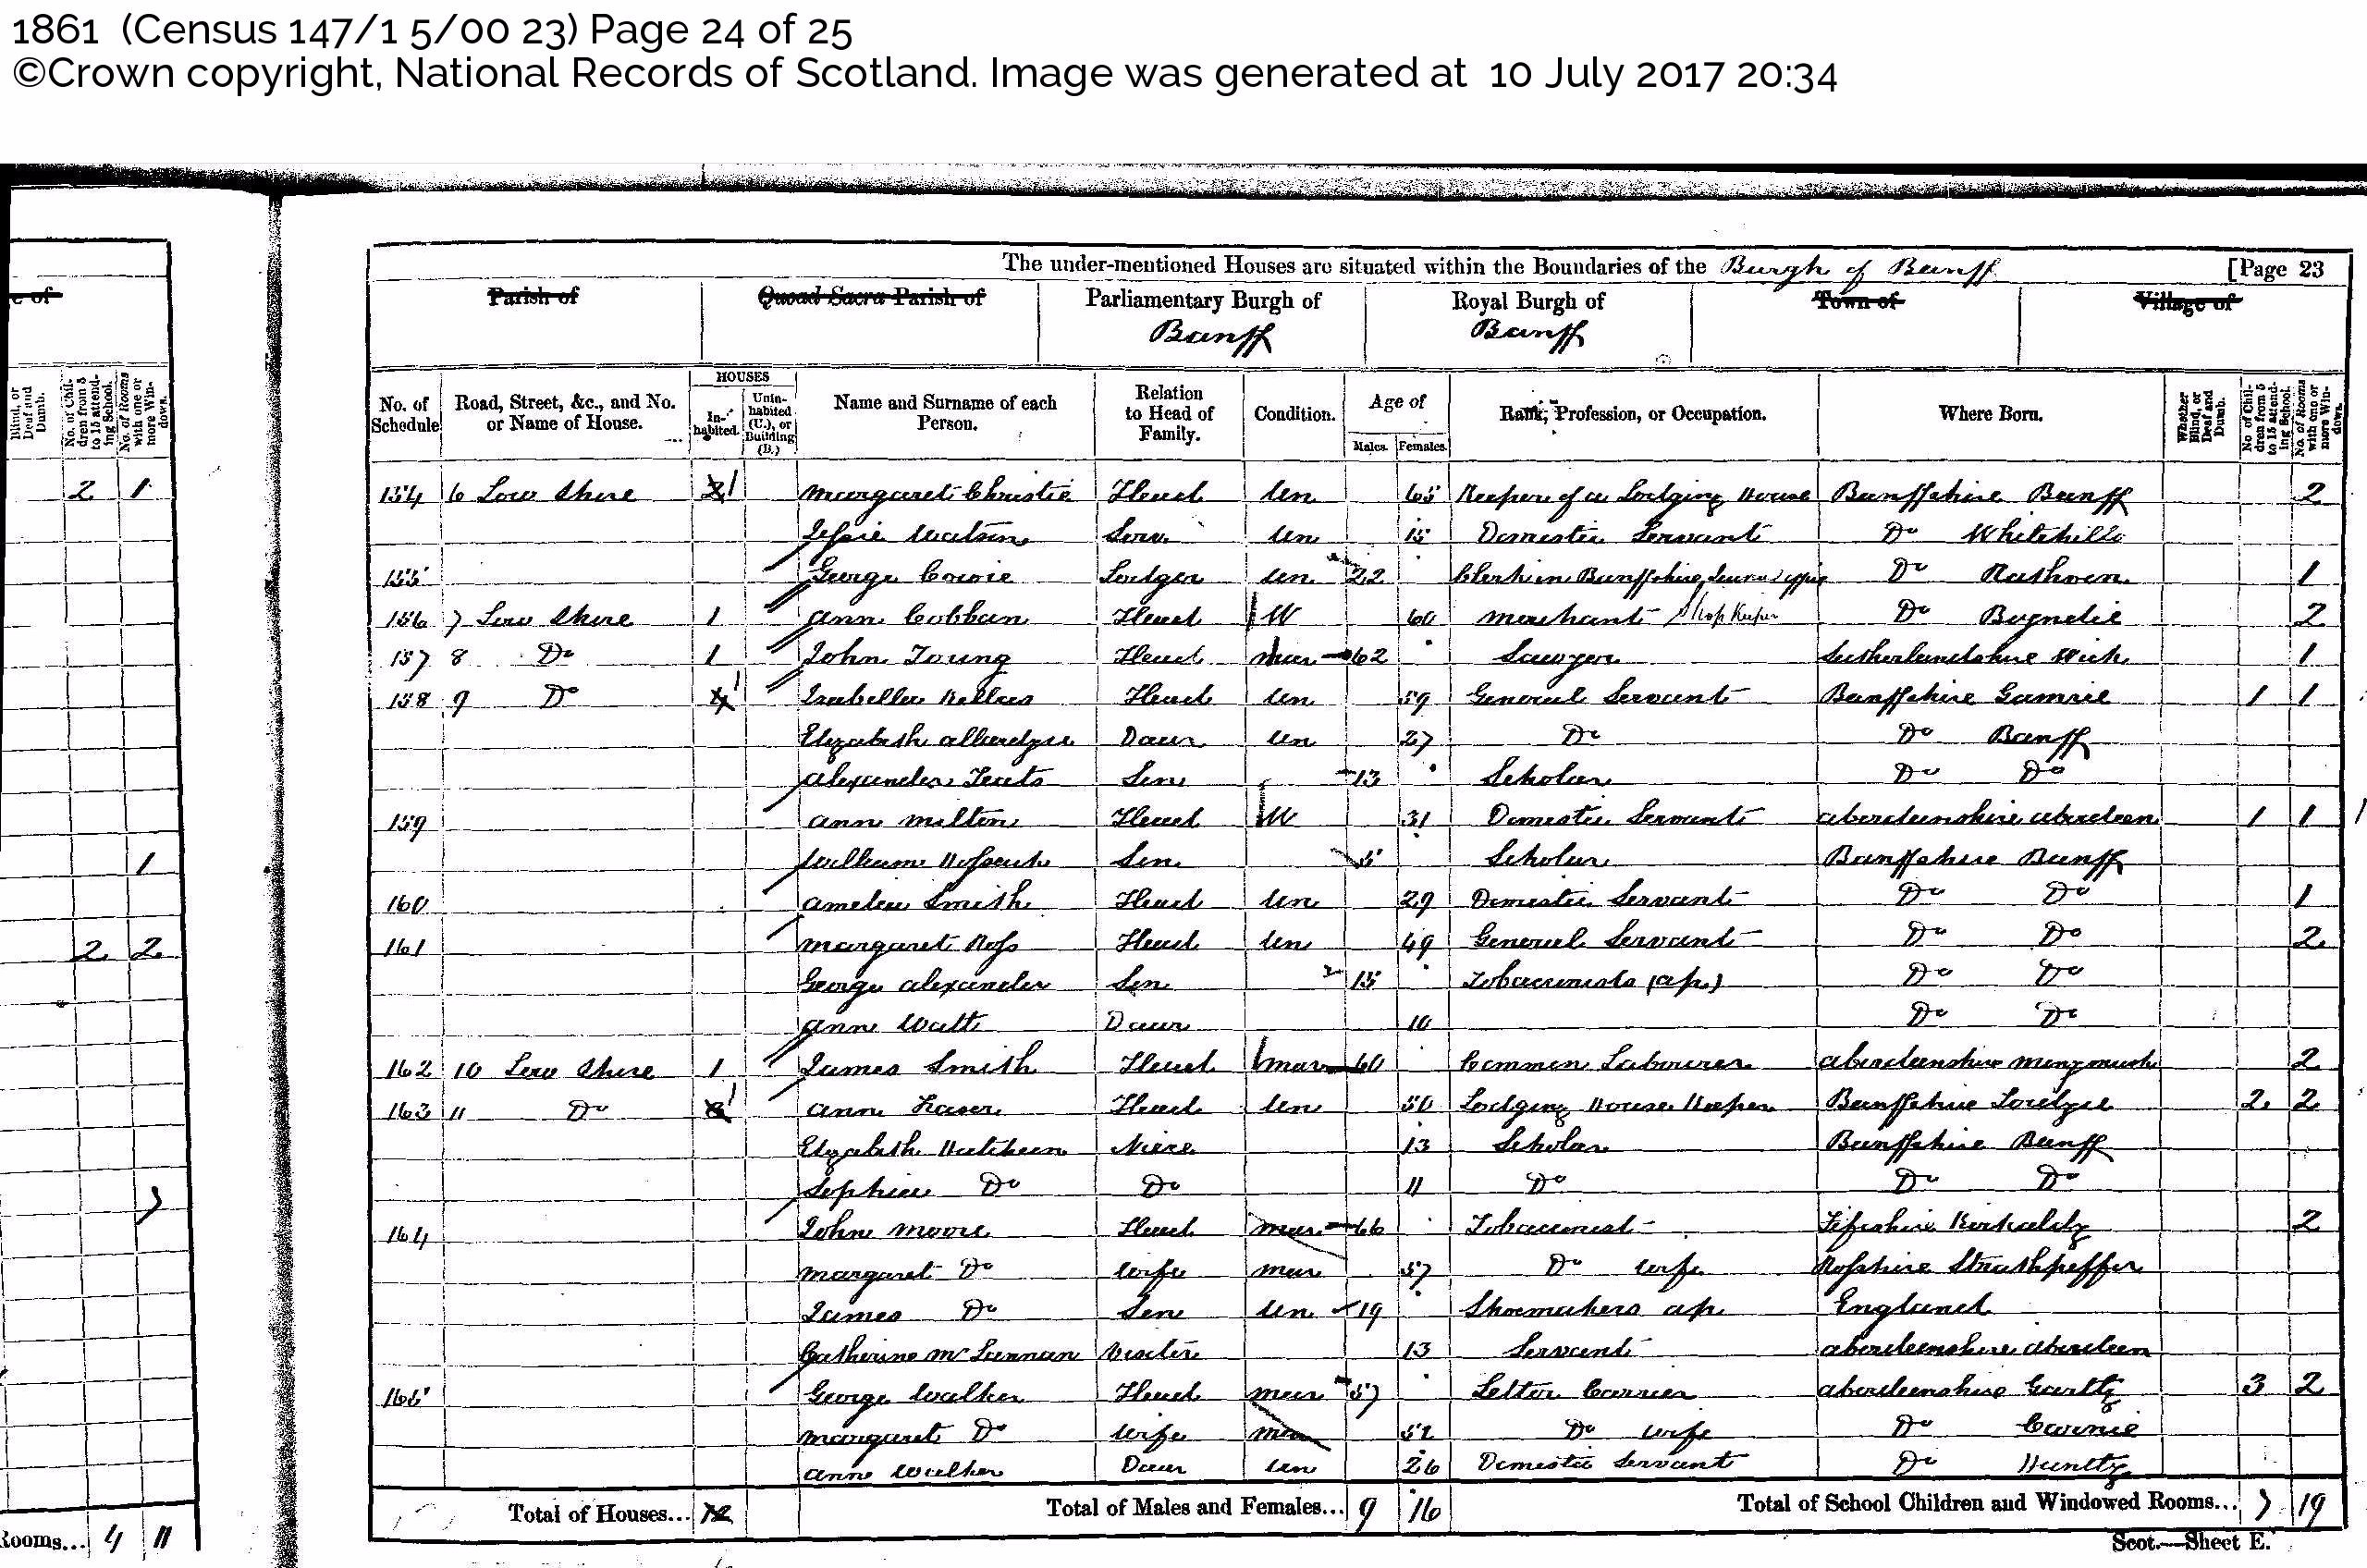 1861 (Census 147/1 5/00 23) Page 24 of 25
©Crown copyright, National Records of Scotland. Image was generated at 10 July 2017 20:34
The under-mentioned Houses are situated within the Boundaries of the Burgh of Banff [Page 23
Parish of Quoad Sacra Parish of Parliamentary Burgh of Royal Burgh of Town of Village of
Banff Banff
No. of Schedule Road, Street, &c., and No. or Name of House. HOUSES In-habited. Unin-habited (U.), or Building (B.) Name and Surname of each Person. Relation to Head of Family. Condition. Age of Males. Females. Rank, Profession, or Occupation. Where Born. Whether Blind, or Deaf and Dumb. No. of Chil-dren from 5 to 15 attend-ing School. No. of Rooms with one or more Win-dows.
154 6 Low Shore 1 Margaret Christie Head Un 65 Keeper of a Lodging House Banffshire Banff 2
Jessie Watson Serv. Un 15 Domestic Servant Do Whitehills
155 George Cowie Lodger Un 22 Clerk in Banffshire Journal Office Do Rathven 1
156 7 Low Shore 1 Ann Cobban Head W 60 Merchant Shop Keeper Do Boyndie 2
157 8 Do 1 John Young Head Mar 62 Sawyer Sutherlandshire Wick 1
158 9 Do 1 Isabella Kellas Head Un 59 General Servant Banffshire Gamrie 1 1
Elizabeth Allardyce Daur Un 27 Do Do Banff
Alexander Teats Son 13 Scholar Do Do
159 Ann Milton Head W 31 Domestic Servant Aberdeenshire Aberdeen 1 1
William Son 5 Scholar Banffshire Banff
160 Amelia Smith Head Un 29 Domestic Servant Do Do 1
161 Margaret Ross Head Un 49 General Servant Do Do 2
George Alexander Son 15 Tobacconists (ap.) Do Do
Anne Watt Daur 10 Do Do
162 10 Low Shore 1 James Smith Head Mar 60 Common Labourer Aberdeenshire Monymusk 2
163 11 Do 1 Ann Fraser Head Un 50 Lodging House Keeper Banffshire Fordyce 2 2
Elizabeth Hutcheon Niece 13 Scholar Banffshire Banff
Sophia Do Do 11 Do Do Do
164 John Moore Head Mar 66 Tobacconist Fifeshire Kirkaldy 2
Margaret Do Wife Mar 57 Do Wife Rosshire Strathpeffer
James Do Son Un 19 Shoemakers ap. England
Catherine McLennan Visitor 13 Servant Aberdeenshire Aberdeen
165 George Walker Head Mar 57 Letter Carrier Aberdeenshire Gartly 3 2
Margaret Do Wife Mar 52 Do Wife Do Cairnie
Anne Walker Daur Un 26 Domestic Servant Do Huntly
Total of Houses... 12 Total of Males and Females... 9 16 Total of School Children and Windowed Rooms... 7 19
Rooms... 4 11
Scot.—Sheet E.